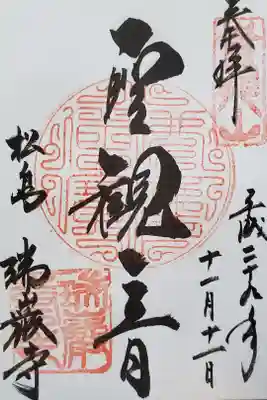 奉拝
平成二十九年
十一月十一日
聖観音
松島
瑞巌寺